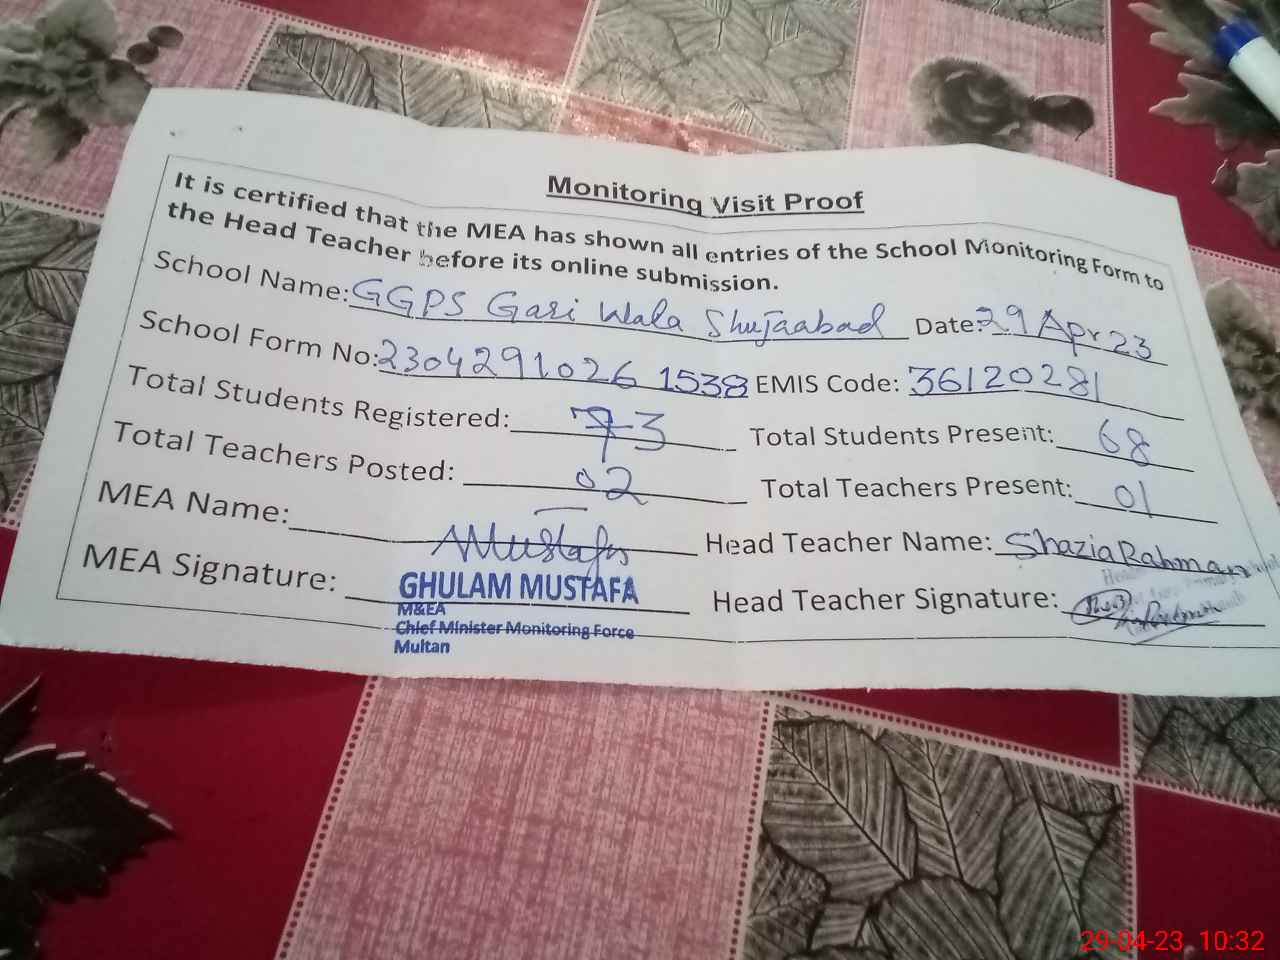 Monitoring Visit Proof
It is certified that the MEA has shown all entries of the School Monitoring Form to
the Head Teacher before its online submission.
School Name: GGPS Gari Wala Shujaabad Date: 29 Apr 23
School Form No: 2304291026 1538 EMIS Code: 36120281
Total Students Registered: 73 Total Students Present: 68
Total Teachers Posted: 02 Total Teachers Present: 01
MEA Name: Mustafa Head Teacher Name: Shazia Rahman
MEA Signature: GHULAM MUSTAFA Head Teacher Signature:
M&EA
Chief Minister Monitoring Force
Multan
29-04-23 10:32